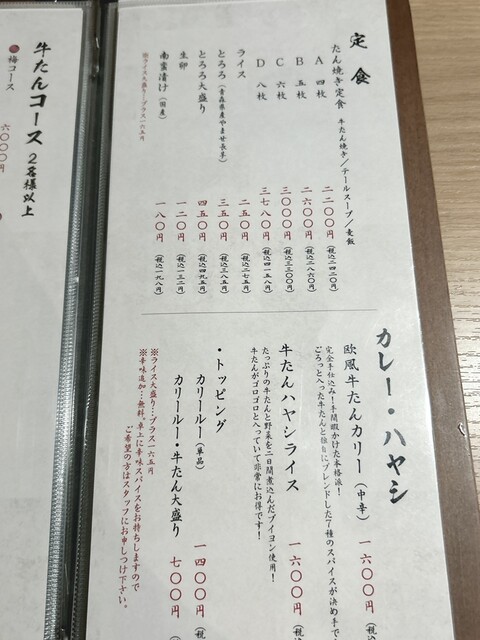 定食
たん焼き定食 牛たん焼き／テールスープ／麦飯
A 四枚 二二〇〇円 (税込二四二〇円)
B 五枚 二六〇〇円 (税込二八六〇円)
C 六枚 三〇〇〇円 (税込三三〇〇円)
D 八枚 三七八〇円 (税込四一五八円)
ライス 二五〇円 (税込二七五円)
とろろ (青森県産やませ長芋) 三五〇円 (税込三八五円)
とろろ大盛り 四五〇円 (税込四九五円)
生卵 一二〇円 (税込一三二円)
南蛮漬け (国産) 一八〇円 (税込一九八円)
※ライス大盛り…プラス一六五円
カレー・ハヤシ
欧風牛たんカリー (中辛) 一六〇〇円
完全手仕込み！手間暇かけた本格派！
ごろっと入った牛たんと独自にブレンドした7種のスパイスが決め手で
牛たんハヤシライス 一六〇〇円 (税
たっぷりの牛たんと野菜を二日間煮込んだブイヨン使用！
牛たんがゴロゴロと入っていて非常にお得です！
・トッピング
カリールー (単品) 一四〇〇円 (税
カリールー・牛たん大盛り 七〇〇円 (税
※ライス大盛り…プラス一六五円
※辛味追加…無料。卓上に辛味スパイスをお持ちしますので
ご希望の方はスタッフにお申しつけ下さい。
牛たんコース 2名様以上
梅コース 六〇〇〇円